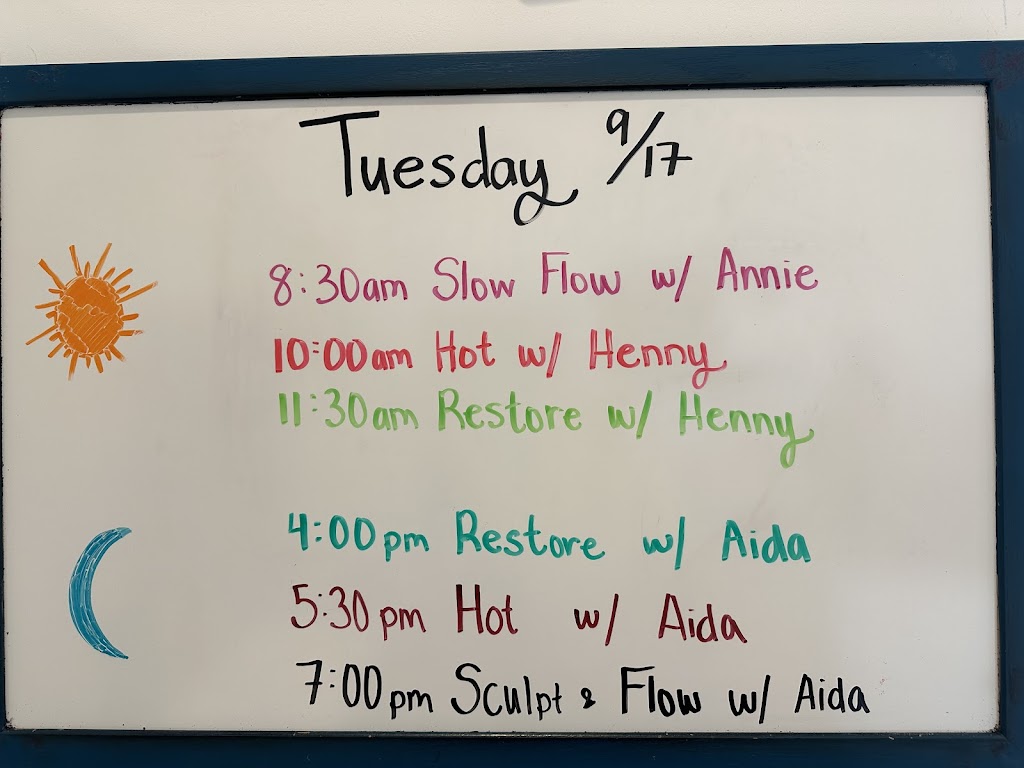 Tuesday 9/17
8:30am Slow Flow w/ Annie
10:00am Hot w/ Henny
11:30am Restore w/ Henny
4:00pm Restore w/ Aida
5:30pm Hot w/ Aida
7:00pm Sculpt & Flow w/ Aida